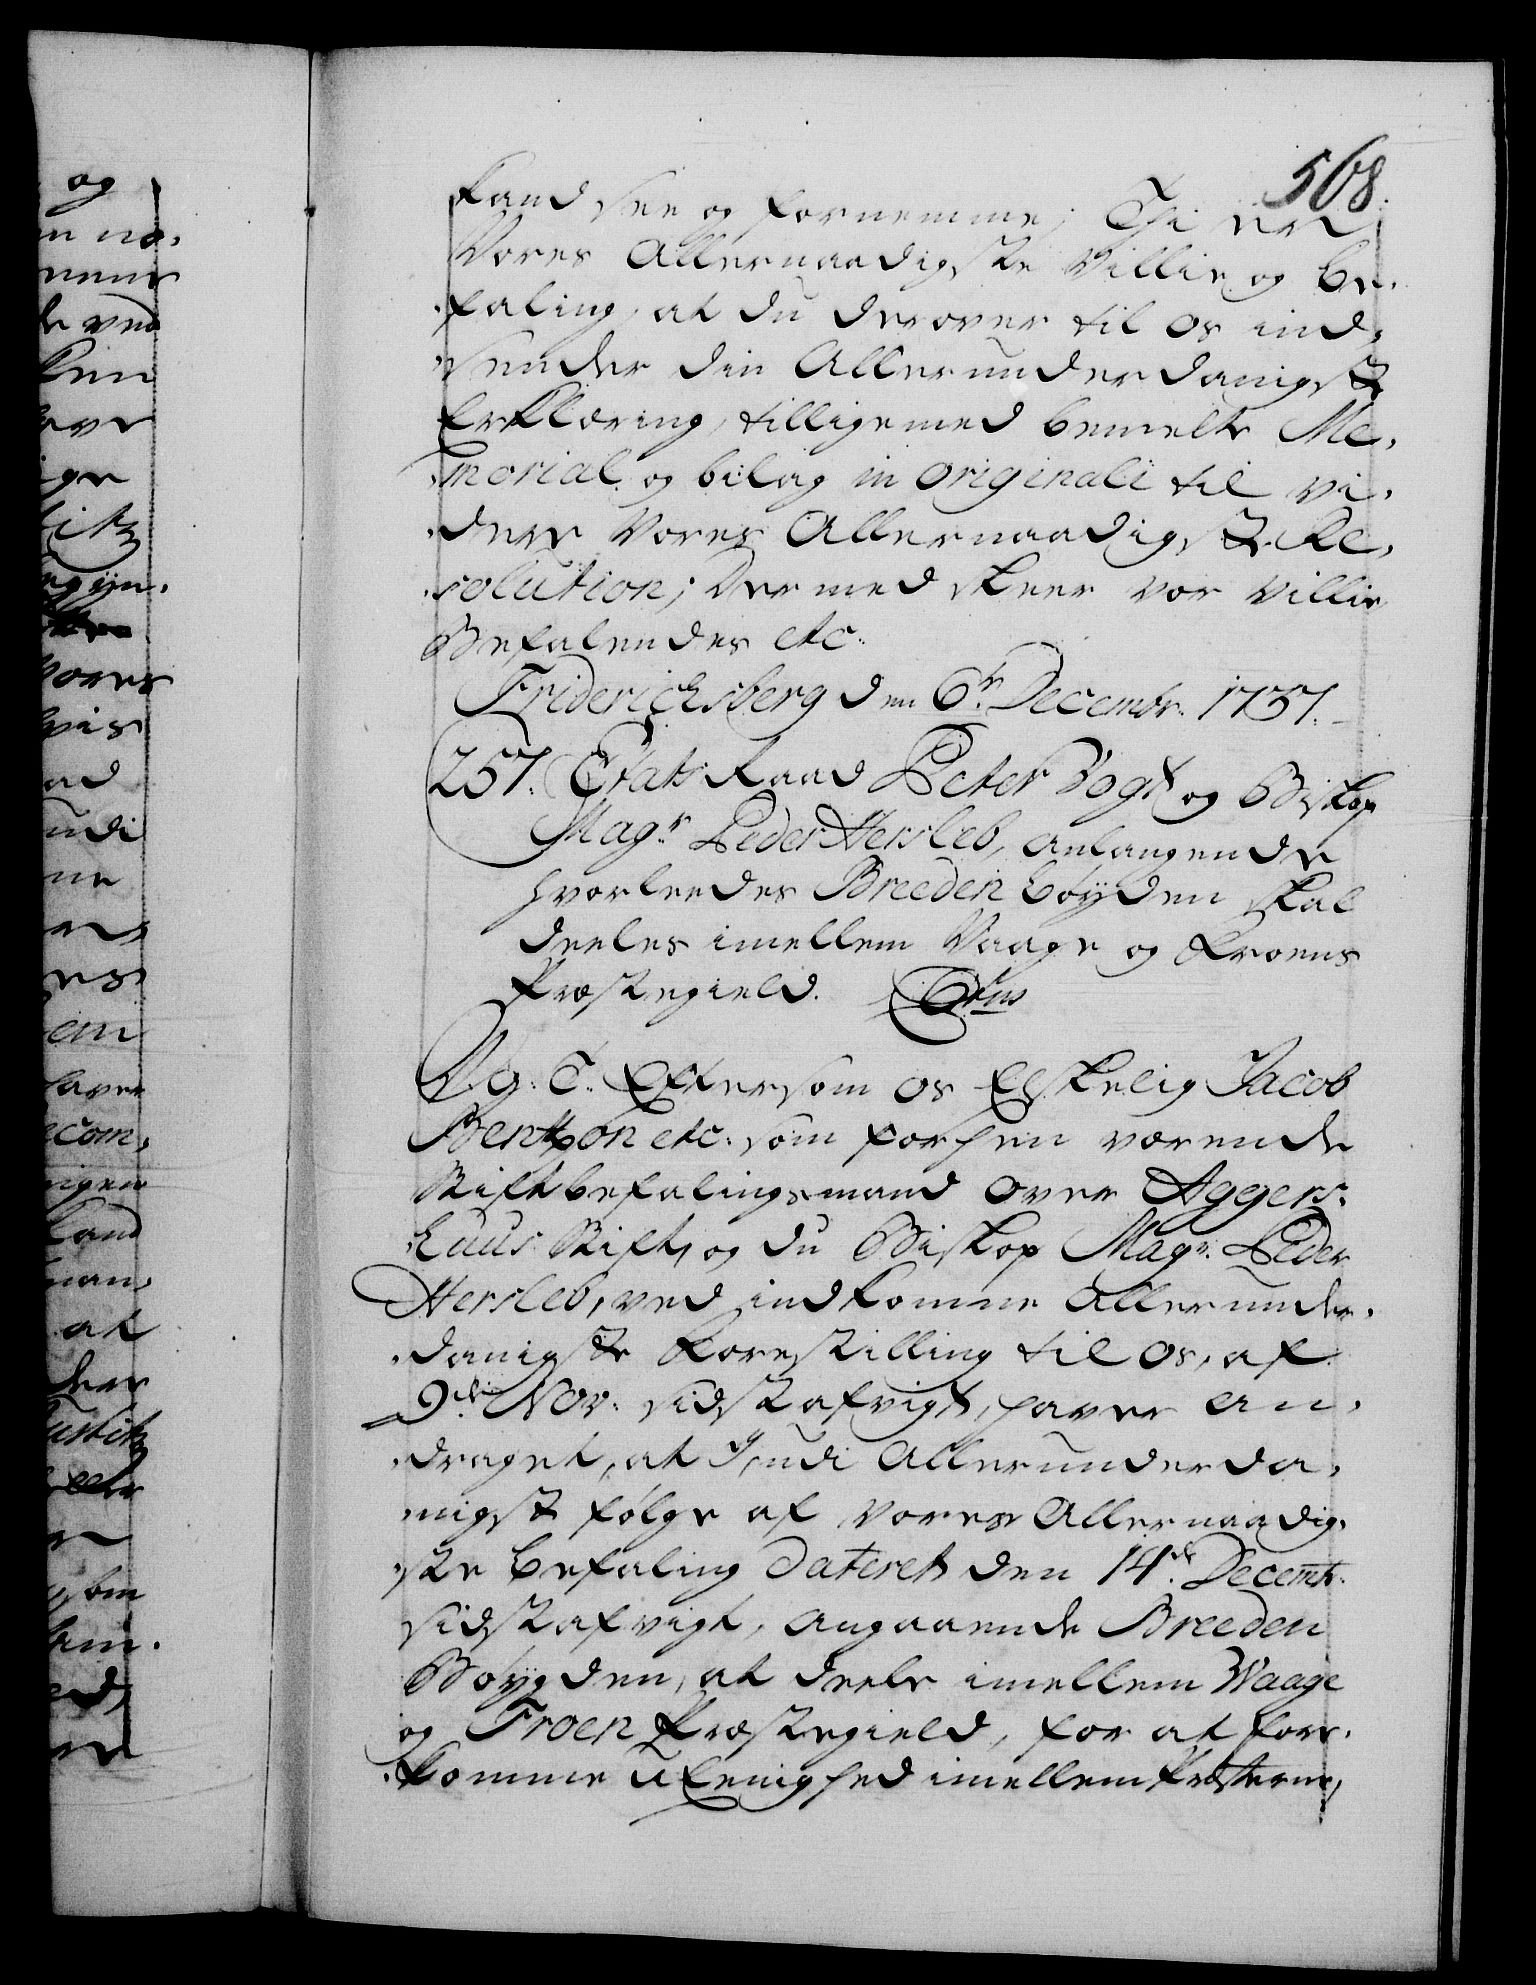 568.
kand see og fornemme; Thi er
Vores Allernaadigste Villie og be-
faling, at du derover til os ind-
sender din Allerunderdanigste
Erklæring, tilligemed bemelte Me-
morial og bilag in originali til vi-
dere Vores Allernaadigste Re-
solution; Dermed skeer vor Villie
Befalendes etc.
Friderichsberg den 6te Decembr. 1737.
257. Etats Raad Peter Vogt og Biskop
Magr. Peder Hersleb, anlangende
hvorleedes Breeden böÿden skal
deeles imellem Vaage og Froens
Præstegield.
V. G. T. Eftersom os Elskelig Jacob
Bentzon etc. som forhen værende
Stiftbefalingsmand over Aggers-
huus Stift, og du Biskop Magr. Peder
Hersleb, ved indkomne Allerunder-
danigste Forestilling til Os, af
9de Nov. sidst afvigt, haver an-
draget, at I, udi Allerunderda-
nigst følge af Vores Allernaadig-
ste befaling dateret den 14de Decembr.
sidst afvigt, angaaende Breeden
Böÿgden, at deele imellem Waage
og Froen Præstegield, for at fore-
komme Uenighed imellem Præsterne,
og
ved
Vores
ad
udi
ne
haver
com-
kand
at
deer
som